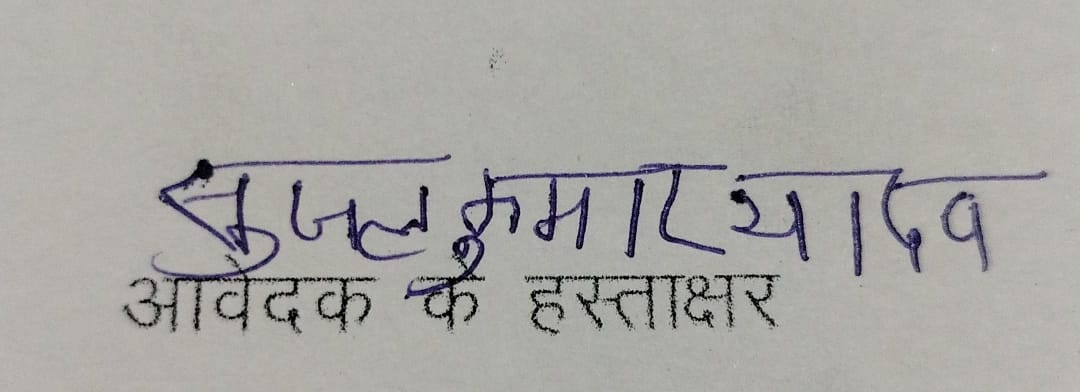 सुजल कुमार यादव
आवेदक के हस्ताक्षर